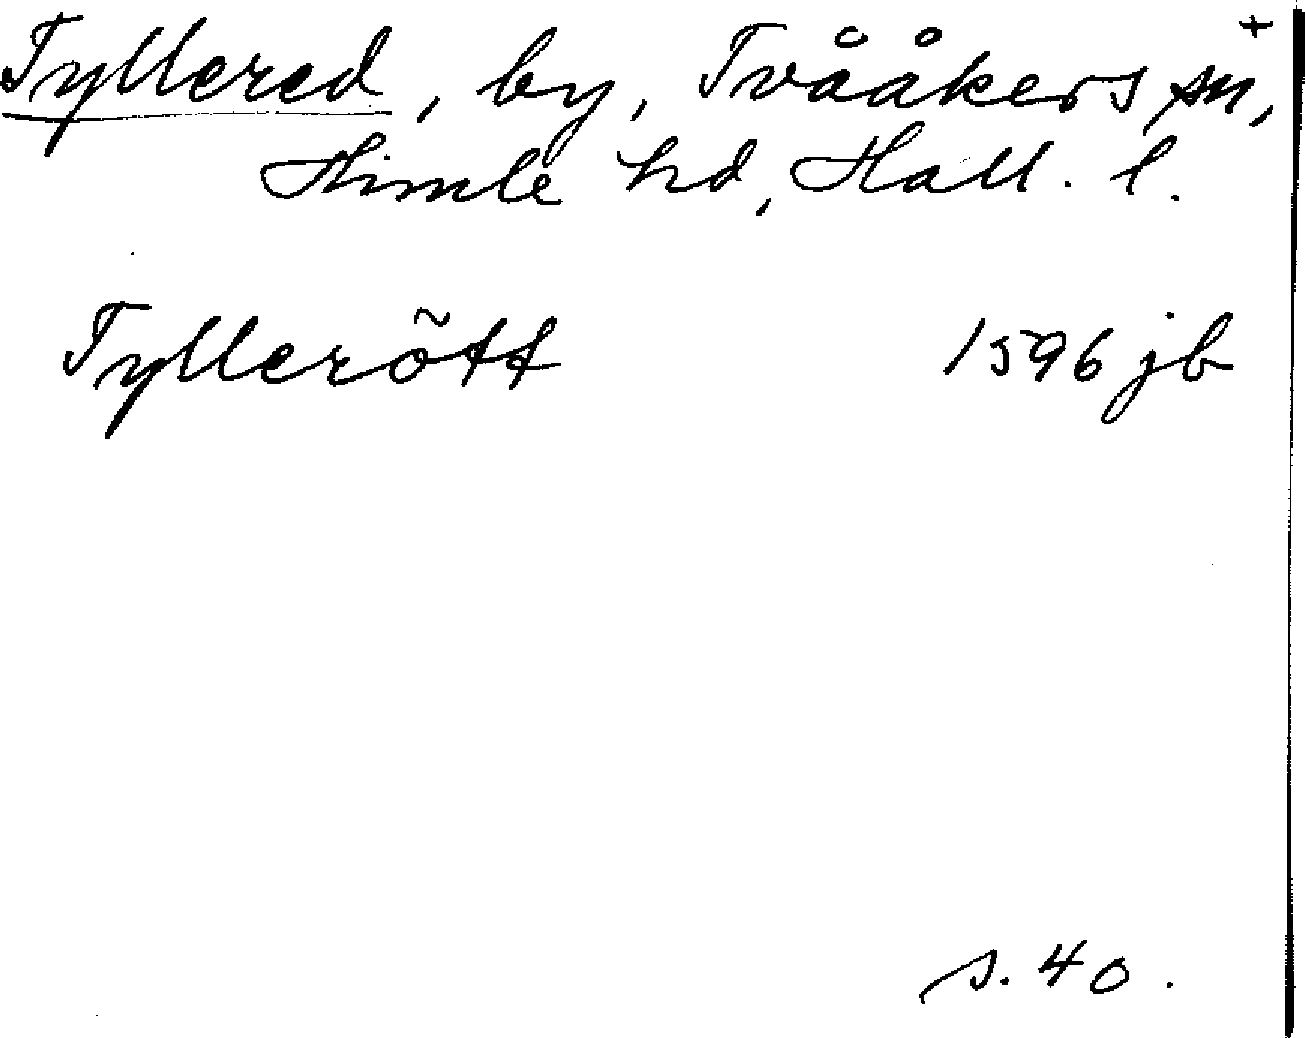 Tyllered, by, Tvååkers sn, +
Himle hd, Hall. l.
Tyllerõtt 1596 jb
s. 40.